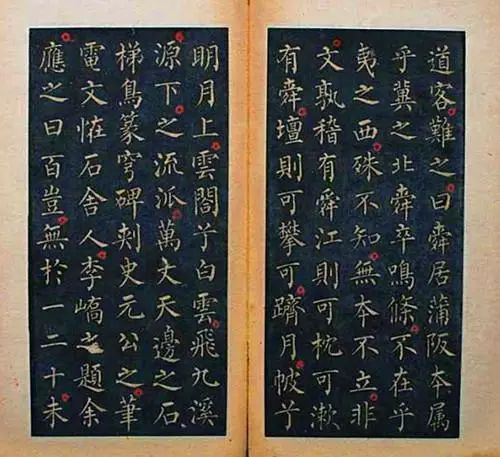 道客難之曰舜居蒲阪本属
乎冀之北舜卒鳴條不在乎
夷之西殊不知無本不立非
文孰稽有舜江則可枕可漱
有舜壇則可攀可躋月帔兮
明月上雲閣兮白雲飛九溪
源下之流派萬丈天邊之石
梯鳥篆穹碑刾史元公之筆
電文恠石舍人李嶠之題余
應之曰百豈無於一二十未